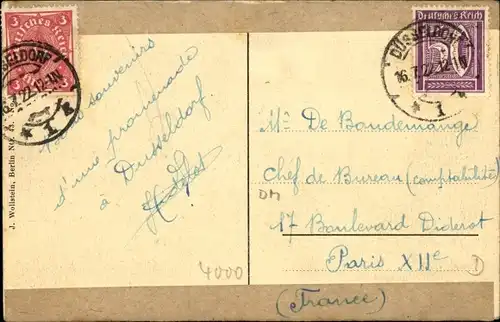 3
Deutsches Reich
DÜSSELDORF
22.12-1N
* 1 g
Deutsches Reich
50
DÜSSELDORF
16.7.22.12-1N
* 1
J. Wollstein, Berlin
souvenirs
d'une promenade
à Dusseldorf.
Mr De Baudemange
Chef de Bureau (comptabilité)
DM
17 Boulevard Diderot
Paris XIIe
(France)
4000
D